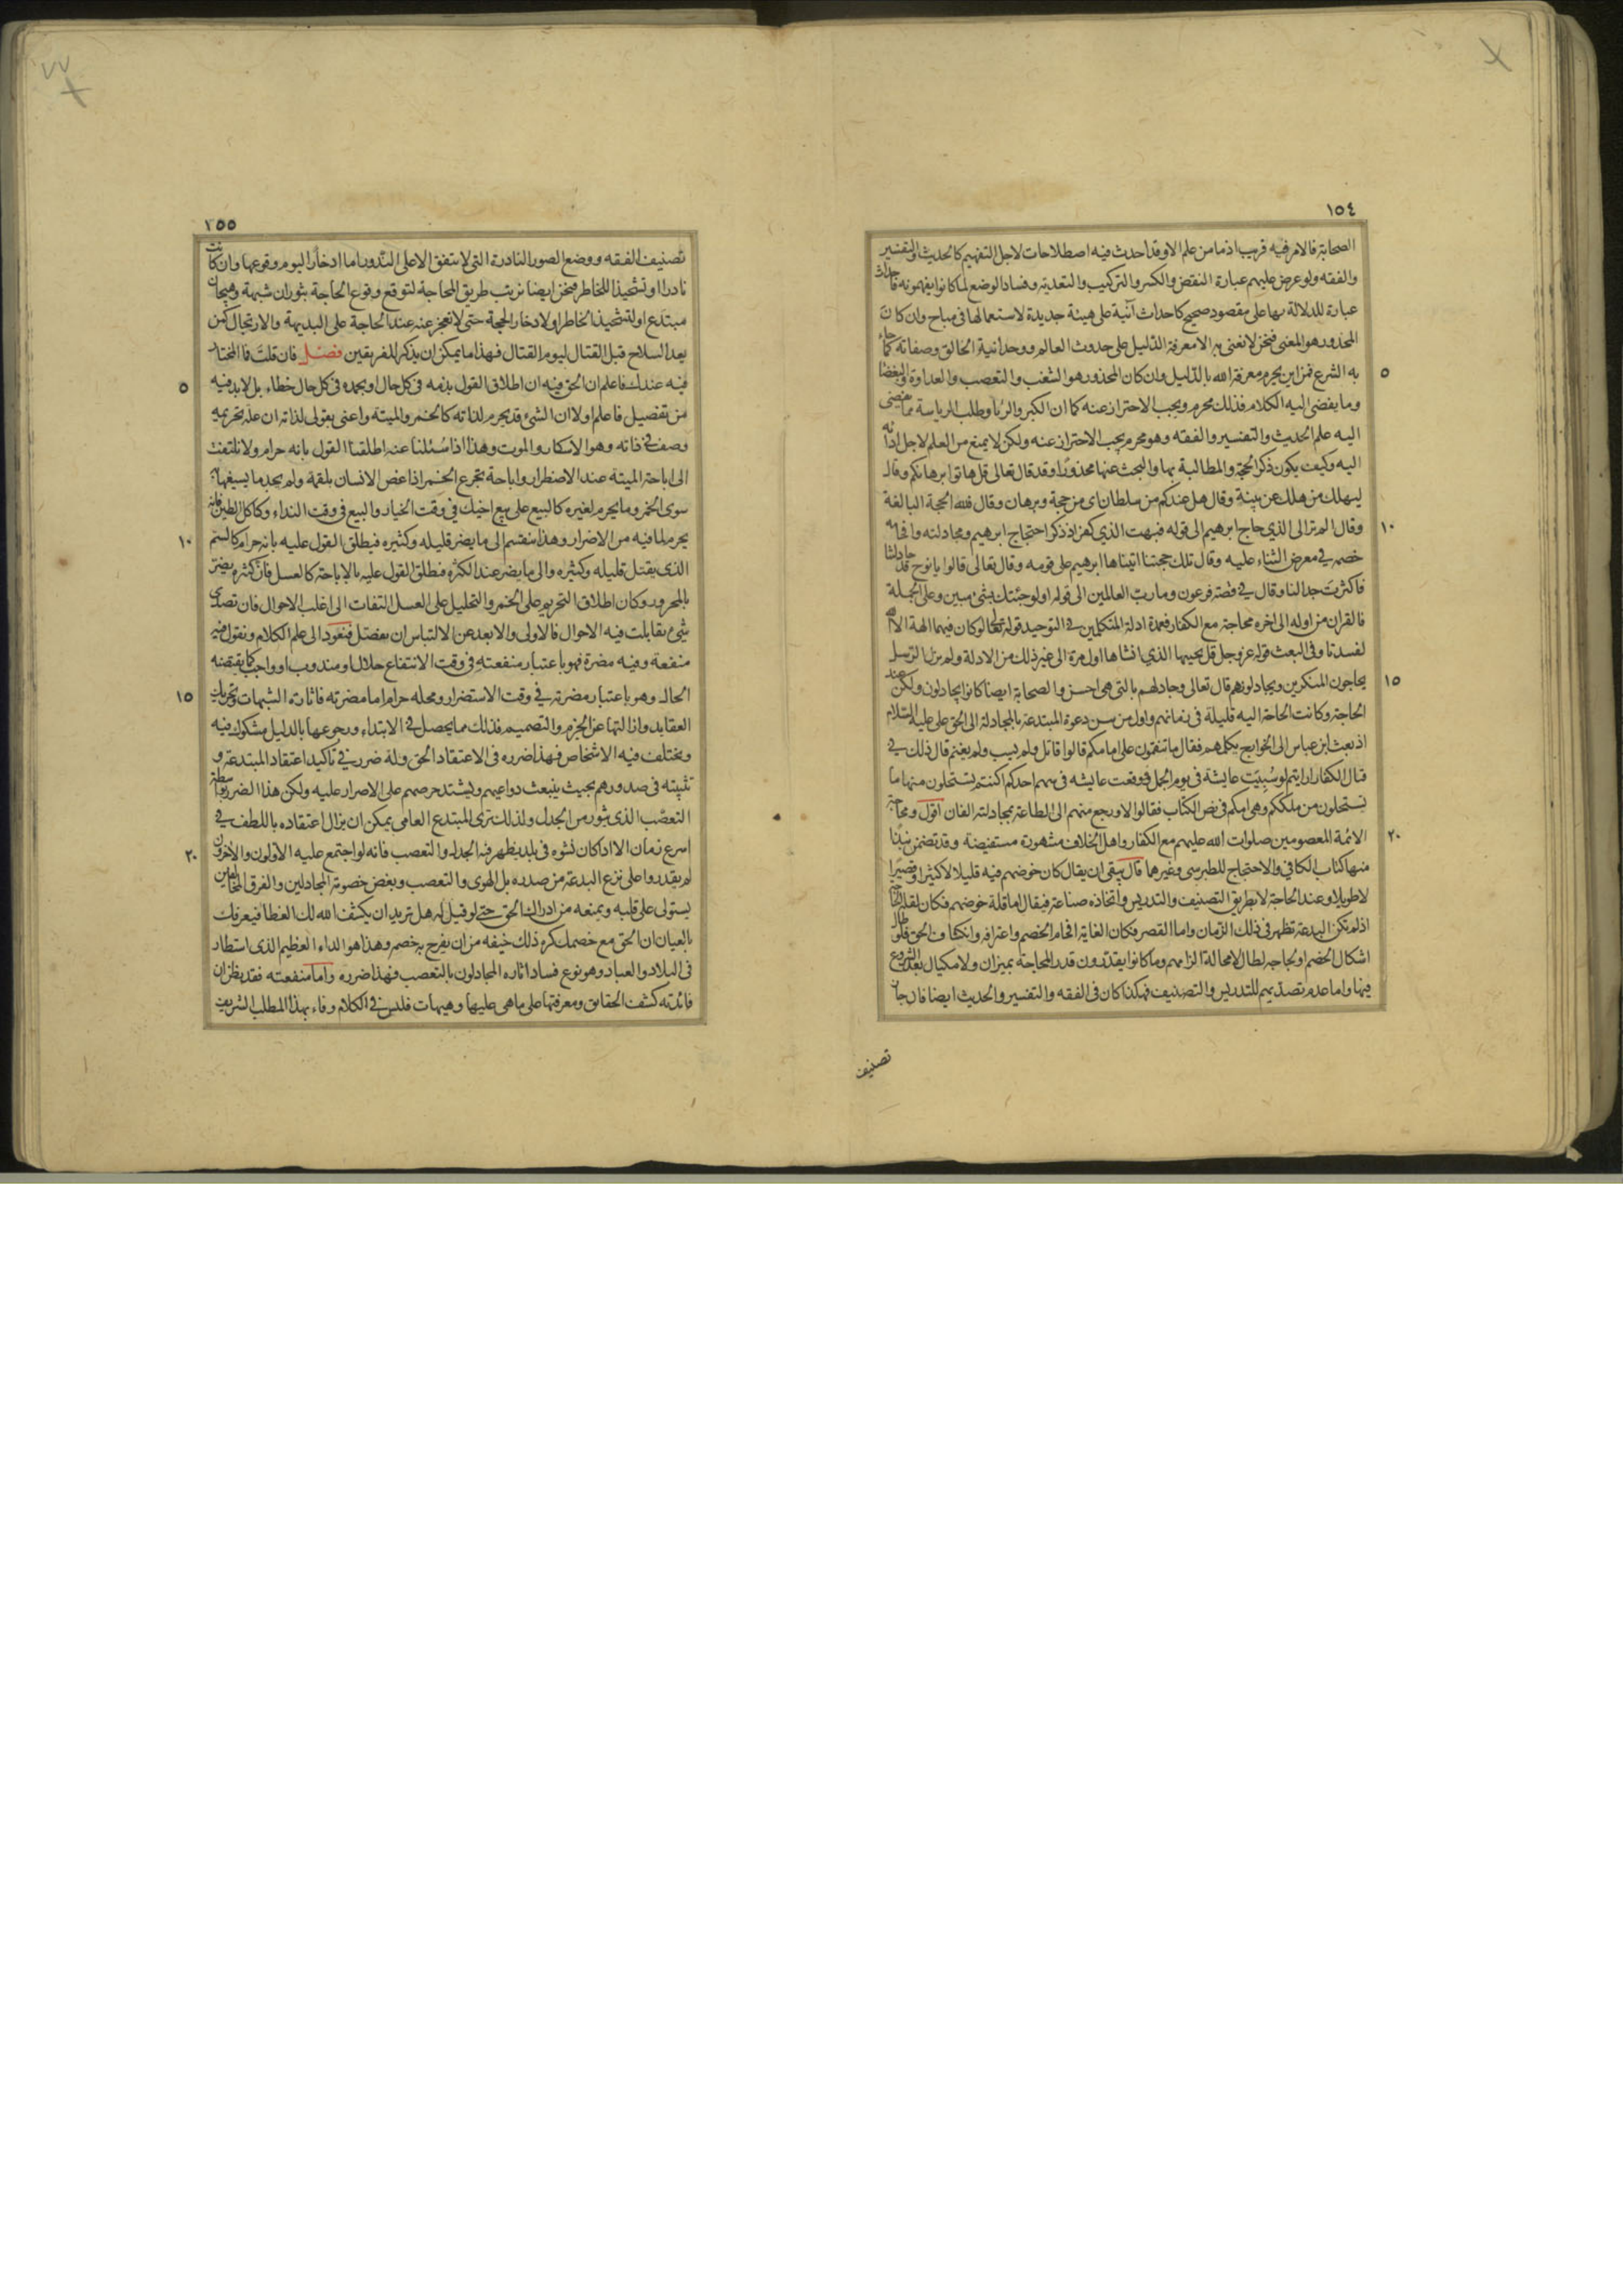 ١٥٤
الصحابة فالامر فيه قريب اذ ما من علم الا وقد احدث فيه اصطلاحات لاجل التفهيم كالحديث والتفسير
والفقه ولو عرض عليهم عبارة النقض والكسر والتركيب والتعدية وفساد الوضع لما كانوا يفهمونه فاحداث
عبارة للدلالة بها على مقصود صحيح كاحداث آنية على هيئة جديدة لاستعمالها فى مباح وان كان
المحذور هو المعنى فنحن لا نعنى به الا معرفة الدليل على حدوث العالم ووحدانية الخالق وصفاته كما جاء
٥
به الشرع فمن اين يحرم معرفة الله بالدليل وان كان المحذور هو الشغب والتعصب والعداوة والبغضا
وما يفضى اليه الكلام فذلك محرم ويجب الاحتراز عنه كما ان الكبر والريا وطلب الرياسة مما يفضى
اليه علم الحديث والتفسير والفقه وهو محرم يجب الاحتراز عنه ولكن لا يمنع من العلم لاجل ادائه
اليه وكيف يكون ذكر الحجة والمطالبة بها والبحث عنها محذورا وقد قال تعالى قل هاتوا برهانكم وقال
ليهلك من هلك عن بينة وقال هل عندكم من سلطان اى من حجة وبرهان وقال فلله الحجة البالغة
١٠
وقال الم تر الى الذي حاج ابرهيم الى قوله فبهت الذي كفر اذ ذكر احتجاج ابرهيم ومجادلته وافحامه
خصمه في معرض الثناء عليه وقال تلك حجتنا اتيناها ابرهيم على قومه وقال تعالى قالوا يا نوح قد جادلتنا
فاكثرت جدالنا وقال في قصة فرعون وما رب العالمين الى قوله اولو جئتك بشئ مبين وعلى الجملة
فالقران من اوله الى اخره محاجة مع الكفار فعمدة ادلة المتكلمين في التوحيد قوله تعالى لو كان فيهما الهة الا الله
لفسدتا وفى البعث قوله عز وجل قل يحييها الذي انشاها اول مرة الى غير ذلك من الادلة ولم يزل الرسل
١٥
يحاجون المنكرين ويجادلونهم قال تعالى وجادلهم بالتى هى احسن والصحابة ايضا كانوا يجادلون ولكن عند
الحاجة وكانت الحاجة اليه قليلة فى زمانهم واول من سن دعوة المبتدعة بالمجادلة الى الحق على عليه السلام
اذ بعث ابن عباس الى الخوارج يكلمهم فقال ما تنقمون على امامكم قالوا قاتل ولم يسب ولم يغنم قال ذلك في
قتال الكفار ارايتم لو سُبِيَت عايشة فى يوم الجمل فوقعت عايشه فى سهم احدكم اكنتم تستحلون منها ما
تستحلون من ملككم وهى امكم فى نص الكتاب فقالوا لا ورجع منهم الى الطاعة بمجادلته الفان اقول ومحاجة
٢٠
الائمة المعصومين صلوات الله عليهم مع الكفار واهل الخلاف مشهورة مستفيضة وقد تضمن نبذا
منها كتاب الكافي والاحتجاج للطبرسي وغيرهما قال بقى ان يقال كان خوضهم فيه قليلا لا كثيرا وقصيرا
لا طويلا وعند الحاجة لا بطريق التصنيف والتدريس واتخاذه صناعة فيقال اما قلة خوضهم فكان لقلة الحاجة
اذ لم تكن البدعة تظهر فى ذلك الزمان واما القصر فكان الغاية افحام الخصم واعترافه وانكشاف الحق فلو طال
اشكال الخصم او لجاجه لطال لا محالة الزامهم وما كانوا يقدّرون قدر المحاجة بميزان ولا مكيال بعد الشروع
فيها واما عدم تصديهم للتدريس والتصنيف فهكذا كان فى الفقه والتفسير والحديث ايضا فان جاز
تصنيف
١٥٥
تصنيف الفقه ووضع الصور النادرة التى لا يتفق الا على الندور اما ادخارا ليوم وقوعها وان كانت
نادرا او تشحيذا للخاطر فنحن ايضا نرتب طريق المحاجة لتوقع وقوع الحاجة بثوران شبهة وهيجان
مبتدع او لتشحيذ الخاطر او لادخار الحجة حتى لا نعجز عنه عند الحاجة على البديهة والارتجال كمن
يعد السلاح قبل القتال ليوم القتال فهذا ما يمكن ان يذكر للفريقين فصل فان قلت فما المختار
٥
فيه عندك فاعلم ان الحق فيه ان اطلاق القول بذمه فى كل حال او بحمده فى كل حال خطاء بل لا بد فيه
من تفصيل فاعلم اولا ان الشئ قد يحرم لذاته كالخمر والميتة واعنى بقولى لذاته ان علة تحريمه
وصف في ذاته وهو الاسكار والموت وهذا اذا سُئلنا عنه اطلقنا القول بانه حرام ولا نلتفت
الى اباحة الميتة عند الاضطرار واباحة تجرع الخمر اذا غص الانسان بلقمة ولم يجد ما يسيغها به
سوى الخمر وما يحرم لغيره كالبيع على بيع اخيك في وقت الخيار والبيع فى وقت النداء وكاكل الطين فانه
١٠
يحرم لما فيه من الاضرار وهذا ينقسم الى ما يضر قليله وكثيره فيطلق القول عليه بانه حرام كالسم
الذى يقتل قليله وكثيره والى ما يضر عند الكثرة فيطلق القول عليه بالاباحة كالعسل فان كثره يضر
بالمحرور وكان اطلاق التحريم على الخمر والتحليل على العسل التفات الى اغلب الاحوال فان تصدى
شئ تقابلت فيه الاحوال فالاولى والابعد عن الالتباس ان يفصّل فنعود الى علم الكلام ونقول فيه
منفعة وفيه مضرة فهو باعتبار منفعته فى وقت الانتفاع حلال او مندوب او واجب كما يقتضيه
١٥
الحال وهو باعتبار مضرته في وقت الاستضرار ومحله حرام اما مضرته فاثارة الشبهات وتحريك
العقايد وازالتها عن الجزم والتصميم فذلك مما يحصل في الابتداء ورجوعها بالدليل مشكوك فيه
ويختلف فيه الاشخاص فهذا ضرره فى الاعتقاد الحق وله ضرر في تاكيد اعتقاد المبتدعة و
تثبيته فى صدورهم بحيث ينبعث دواعيهم ويشتد حرصهم على الاصرار عليه ولكن هذا الضرر بواسطة
التعصّب الذى يثور من الجدل ولذلك ترى المبتدع العامى يمكن ان يزال اعتقاده باللطف في
٢٠
اسرع زمان الا اذا كان نشوه فى بلد يظهر فيه الجدل والتعصب فانه لو اجتمع عليه الاولون والآخرون
لم يقدروا على نزع البدعة من صدره بل الهوى والتعصب وبغض خصومة المجادلين والفرق المخالفين
يستولى على قلبه ويمنعه من ادراك الحق حتى لو قيل له هل تريد ان يكشف الله لك الغطا فيعرفك
بالعيان ان الحق مع خصمك كره ذلك خيفه من ان يفرح به خصمه وهذا هو الداء العظيم الذى استطار
فى البلاد والعباد وهو نوع فساد اثاره المجادلون بالتعصب فهذا ضرره واما منفعته فقد يظن ان
فائدته كشف الحقائق ومعرفتها على ما هى عليها وهيهات فليس في الكلام وفاء بهذا المطلب الشريف